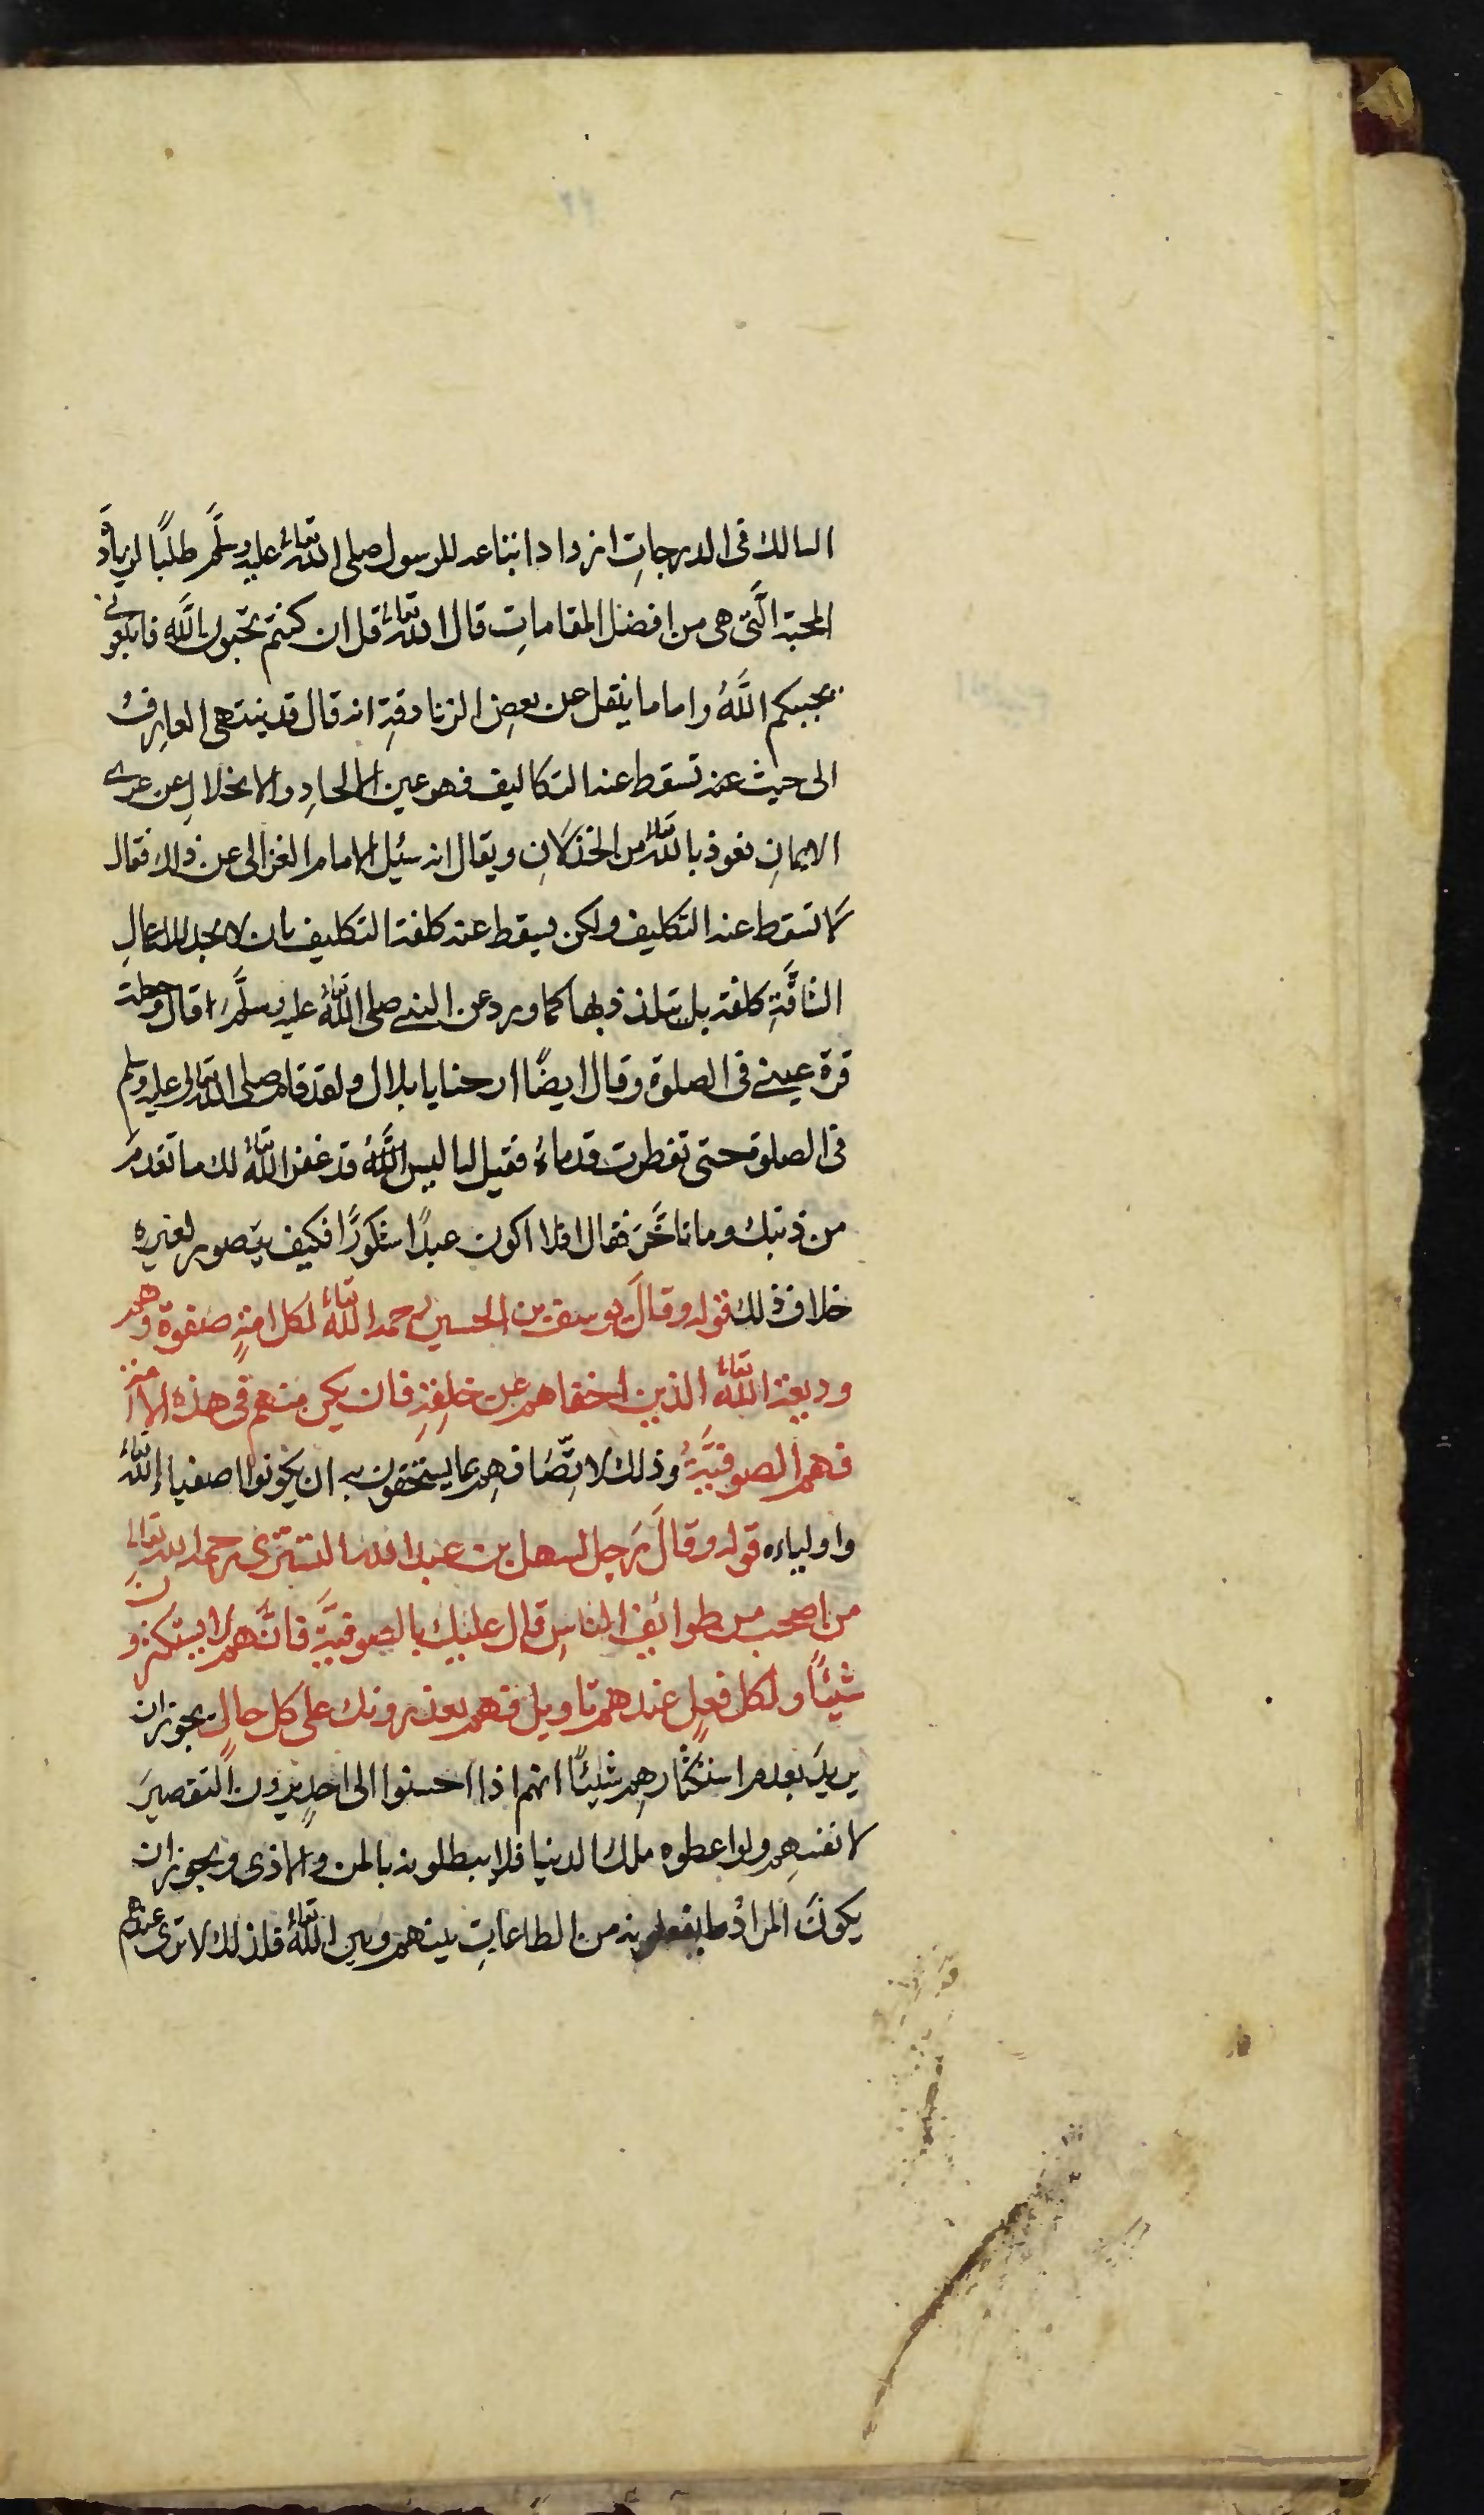 السالك فى الدرجاتِ ازداد اتباعه للرسول صلى الله تعالى عليه وسلَّم طلبًا لزيادة
المحبة الَّتى هى من افضل المقاماتِ قال الله تعالى قل ان كنتم تحبون الله فاتبعونى
يحببكم اللَّهُ واما ما ينقل عن بعض الزنادقةِ انه قال قد ينتهى العارف
الى حيث عنه تسقط عنه التكاليف فهو عين الالحادِ والانحلالِ عن عرى
الايمانِ نعوذ بالله تعالى من الخذلانِ ويقال انه سئيل الامام الغزالى عن ذلك فقال
لا تسقط عنه التكليف ولكن يسقط عنه كلفة التكليف بان لا يجد للاعمالِ
الشاقَّةِ كلفة بل يتلذذ بها كما ورد عن النبى صلى الله تعالى عليه وسلَّم قال وجعلت
قرة عينى فى الصلوة وقال ايضًا ارحنا يا بلال ولقد قام صلى الله تعالى عليه وسلم
فى الصلوة حتى تفطرت قدماهُ فقيل له اليس اللَّهُ قد غفر اللهُ تعالى لك ما تقدم
من ذنبك وما تاخَّرَ فقال افلا اكون عبدًا شكورًا فكيف يتصور لغيره
خلاف ذلك قوله وقال يوسف بن الحسين رحمه الله تعالى لكل امةٍ صفوة وهم
وديعة اللهُ تعالى الذين اخفاهم عن خلقِهِ فان يكن منهم فى هذه الامة
فهم الصوفيَّةُ وذلك لاتِّصَافِهِم بما يستحقون به ان يكونوا اصفياء الله تعالى
واولياءه قوله وقالَ رَجل لسهل بن عبد الله التسترى رحمه الله تعالى
من اصحب من طوائف الناسِ قال عليك بالصوفيَّةِ فانَّهم لا يستكثرون
شيئًا ولكل فعلٍ عندهم تاويل فهم يعذرونك على كل حالٍ يجوز ان
يريدَ بعدم استكثارهِم شيئًا انهم اذا احسنوا الى احدٍ يرون التقصيرَ
لانفسهِم ولو اعطوه ملك الدنيا فلا يبطلونه بالمن والاذى ويجوز ان
يكونَ المرادُ ما يفعلونه من الطاعاتِ بينهم وبين اللهُ تعالى فلذلك لا ترى عندهم